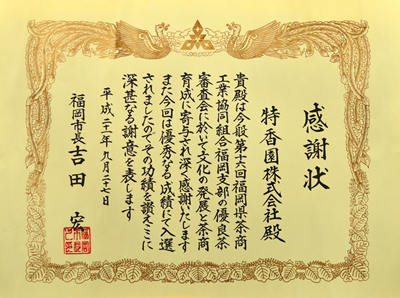 感謝状
特香園株式会社殿
貴殿は今般第十六回福岡県茶商
工業協同組合福岡支部の優良茶
審査会に於いて文化の発展と茶商
育成に寄与され深く感謝いたします
また今回は優秀なる成績にて入選
されましたのでその功績を讃えここに
深甚なる謝意を表します
平成二十一年九月二十七日
福岡市長 吉田 宏